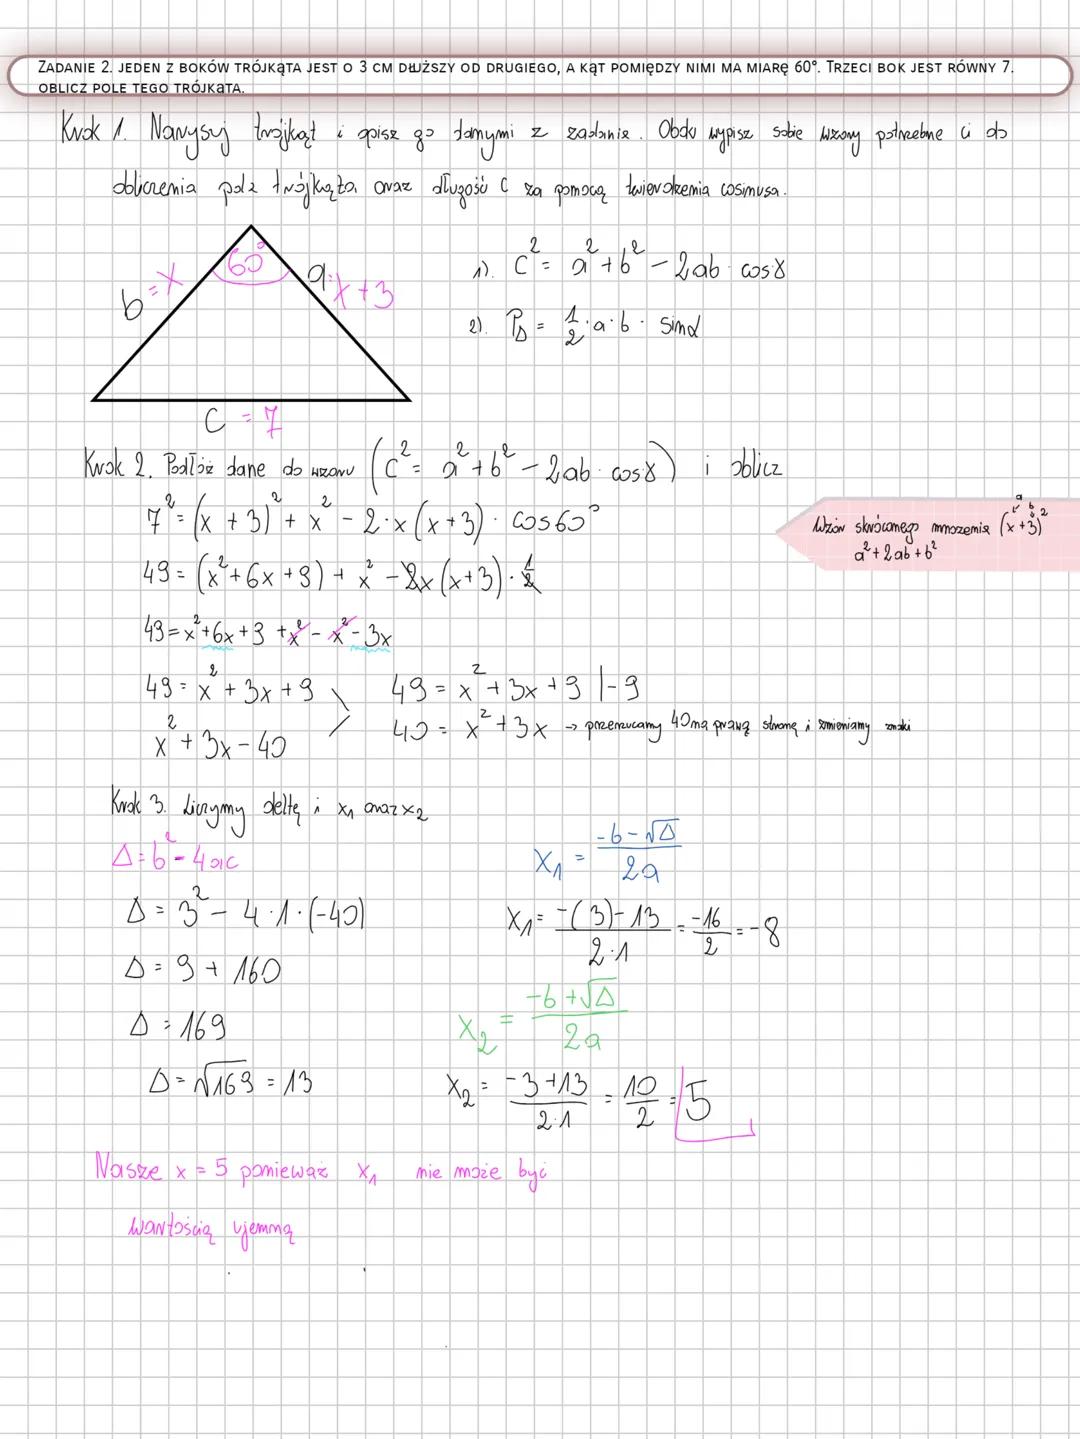 ZADANIE 2. JEDEN Z BOKÓW TRÓJKĄTA JEST O 3 CM DŁUŻSZY OD DRUGIEGO, A KĄT POMIĘDZY NIMI MA MIARĘ 60°. TRZECI BOK JEST RÓWNY 7.
OBLICZ POLE TEGO TRÓJKĄTA.
Krok 1. Narysuj trójkąt i opisz go danymi z zadania. Obok wypisz sobie wzory potrzebne ci do
obliczenia pola trójkąta oraz długość C za pomocą twierdzenia cosinusa.
60°
b = x
a = x + 3
C = 7
1). C² = a² + b² - 2ab · cosγ
2). P△ = 1/2 · a · b · sinα
Krok 2. Podłóż dane do wzoru (C² = a² + b² - 2ab · cosγ) i oblicz
7² = (x + 3)² + x² - 2·x (x+3) · cos60°
Wzór skróconego mnożenia (x+3)²
a b
a² + 2ab + b²
49 = (x² + 6x + 9) + x² - 2x (x+3) · 1/2
49 = x² + 6x + 9 + x² - x² - 3x
49 = x² + 3x + 9
49 = x² + 3x + 9 |-9
x² + 3x - 40
40 = x² + 3x → przerzucamy 40 na prawą stronę i zmieniamy znaki
Krok 3. Liczymy deltę i x₁ oraz x₂
Δ = b² - 4ac
x₁ = (-b - √Δ)/2a
Δ = 3² - 4·1·(-40)
x₁ = (-(3) - 13)/(2·1) = -16/2 = -8
Δ = 9 + 160
x₂ = (-b + √Δ)/2a
Δ = 169
Δ = √169 = 13
x₂ = (-3 + 13)/(2·1) = 10/2 = 5
Nasze x = 5 ponieważ x₁ nie może być
wartością ujemną